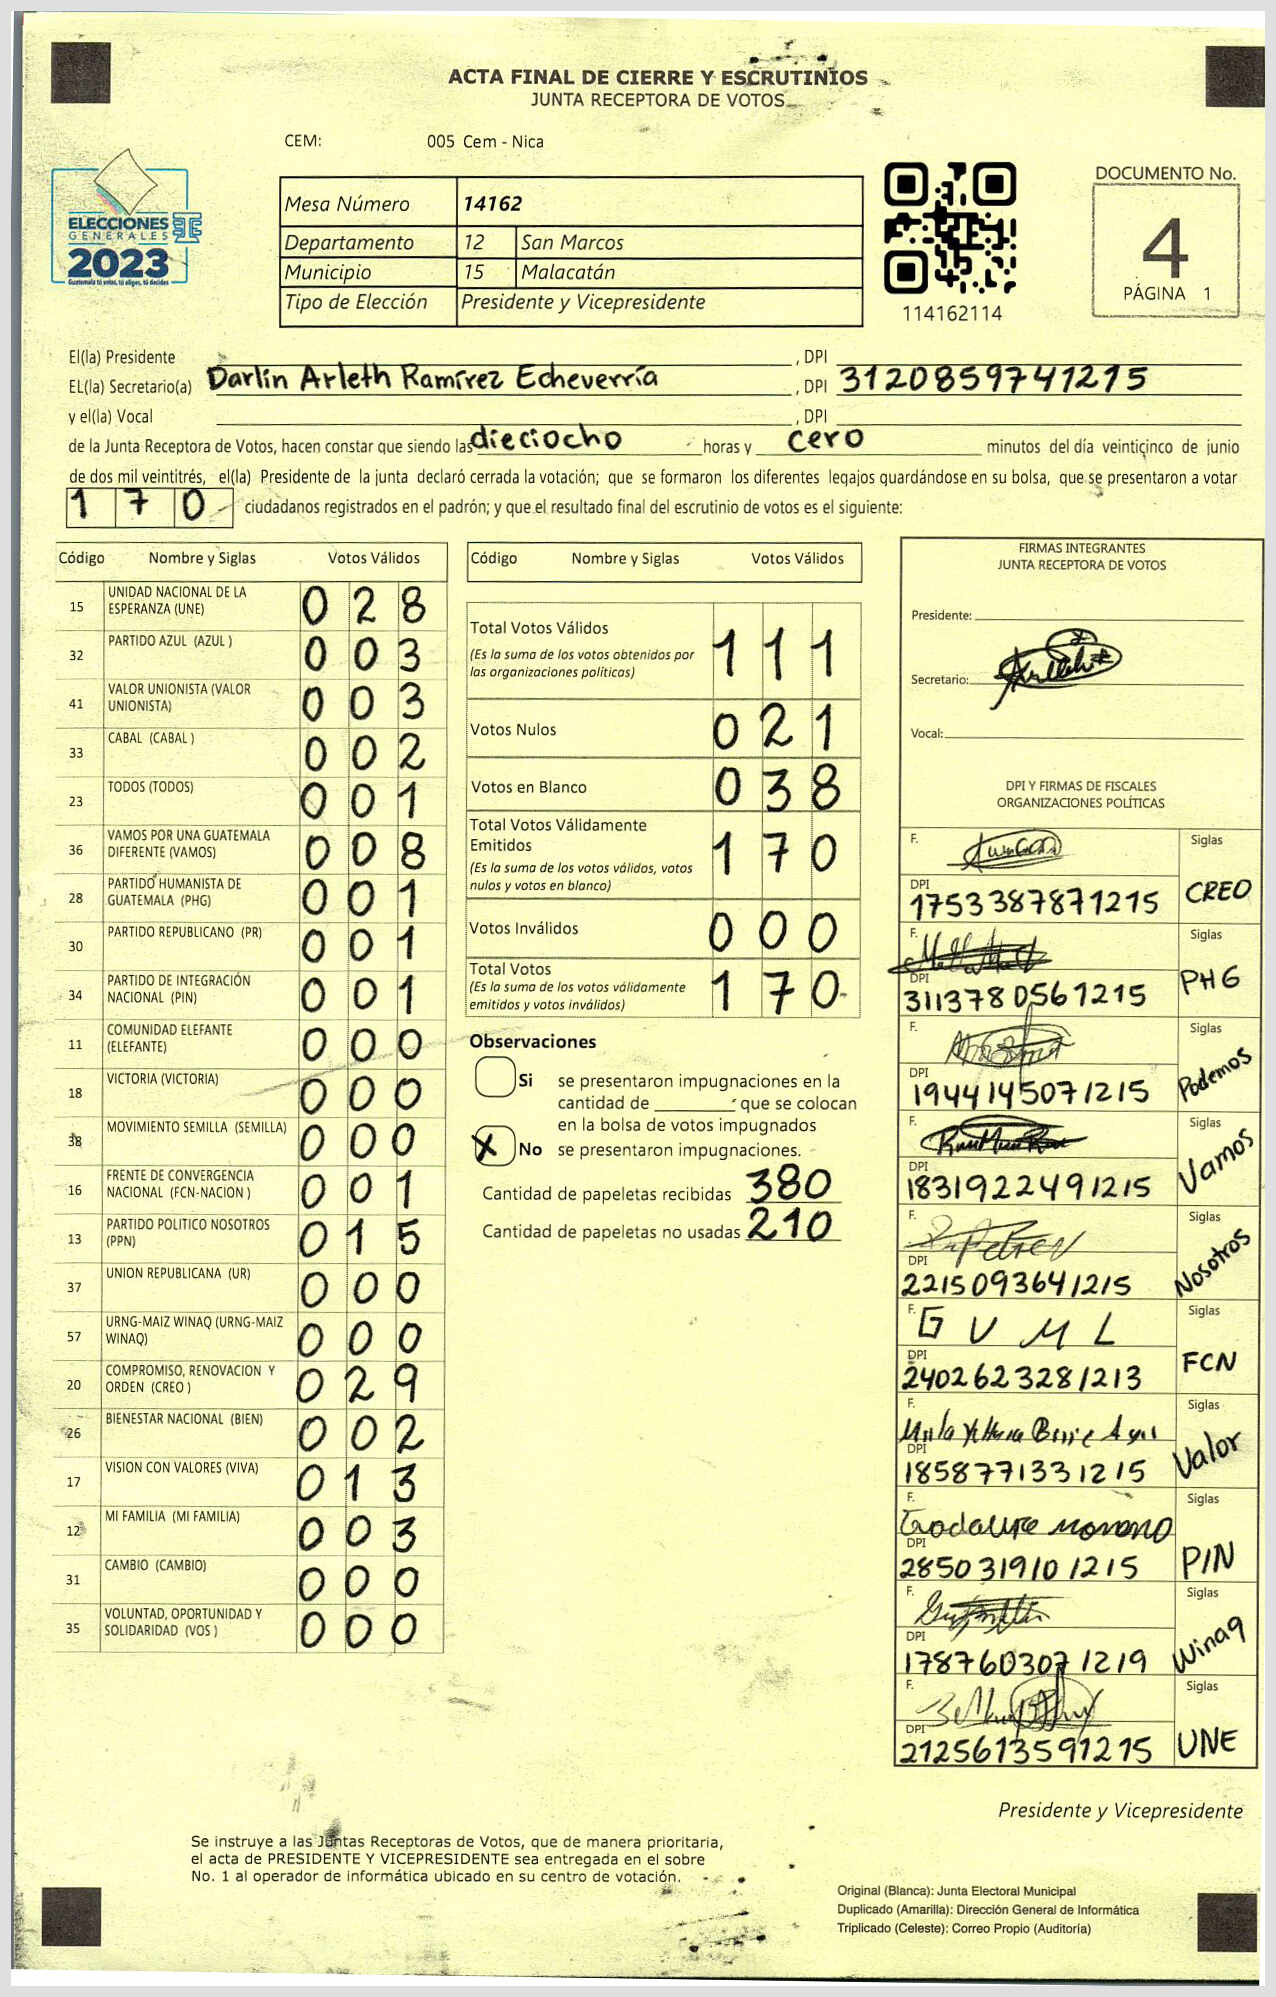 ACTA FINAL DE CIERRE Y ESCRUTINIOS
JUNTA RECEPTORA DE VOTOS
CEM: 005 Cem - Nica
ELECCIONES
GENERALES
2023
Guatemala tú votas, tú eliges, tú decides
Mesa Número 14162
Departamento 12 San Marcos
Municipio 15 Malacatán
Tipo de Elección Presidente y Vicepresidente
114162114
DOCUMENTO No.
4
PÁGINA 1
El(la) Presidente , DPI
EL(la) Secretario(a) Darlin Arleth Ramírez Echeverría , DPI 3120859741215
y el(la) Vocal , DPI
de la Junta Receptora de Votos, hacen constar que siendo las dieciocho horas y cero minutos del día veinticinco de junio
de dos mil veintitrés, el(la) Presidente de la junta declaró cerrada la votación; que se formaron los diferentes legajos guardándose en su bolsa, que se presentaron a votar
170 ciudadanos registrados en el padrón; y que el resultado final del escrutinio de votos es el siguiente:
Código Nombre y Siglas Votos Válidos
15 UNIDAD NACIONAL DE LA ESPERANZA (UNE) 028
32 PARTIDO AZUL (AZUL ) 003
41 VALOR UNIONISTA (VALOR UNIONISTA) 003
33 CABAL (CABAL ) 002
23 TODOS (TODOS) 001
36 VAMOS POR UNA GUATEMALA DIFERENTE (VAMOS) 008
28 PARTIDO HUMANISTA DE GUATEMALA (PHG) 001
30 PARTIDO REPUBLICANO (PR) 001
34 PARTIDO DE INTEGRACIÓN NACIONAL (PIN) 001
11 COMUNIDAD ELEFANTE (ELEFANTE) 000
18 VICTORIA (VICTORIA) 000
38 MOVIMIENTO SEMILLA (SEMILLA) 000
16 FRENTE DE CONVERGENCIA NACIONAL (FCN-NACION ) 001
13 PARTIDO POLITICO NOSOTROS (PPN) 015
37 UNION REPUBLICANA (UR) 000
57 URNG-MAIZ WINAQ (URNG-MAIZ WINAQ) 000
20 COMPROMISO, RENOVACION Y ORDEN (CREO ) 029
26 BIENESTAR NACIONAL (BIEN) 002
17 VISION CON VALORES (VIVA) 013
12 MI FAMILIA (MI FAMILIA) 003
31 CAMBIO (CAMBIO) 000
35 VOLUNTAD, OPORTUNIDAD Y SOLIDARIDAD (VOS ) 000
Código Nombre y Siglas Votos Válidos
Total Votos Válidos 111
(Es la suma de los votos obtenidos por
las organizaciones políticas)
Votos Nulos 021
Votos en Blanco 038
Total Votos Válidamente
Emitidos 170
(Es la suma de los votos válidos, votos
nulos y votos en blanco)
Votos Inválidos 000
Total Votos 170
(Es la suma de los votos válidamente
emitidos y votos inválidos)
Observaciones
Si se presentaron impugnaciones en la
cantidad de ______ que se colocan
en la bolsa de votos impugnados
X No se presentaron impugnaciones.
Cantidad de papeletas recibidas 380
Cantidad de papeletas no usadas 210
FIRMAS INTEGRANTES
JUNTA RECEPTORA DE VOTOS
Presidente:
Secretario:
Vocal:
DPI Y FIRMAS DE FISCALES
ORGANIZACIONES POLÍTICAS
F. Siglas
DPI 1753387871215 CREO
F. Siglas
DPI 3113780561215 PHG
F. Siglas
DPI 1944145071215 Podemos
F. Siglas
DPI 1831922491215 Vamos
F. Siglas
DPI 2215093641215 Nosotros
F. G V M L Siglas
DPI 2402623281213 FCN
F. Siglas
DPI 1858771331215 Valor
F. Siglas
DPI 2850319101215 PIN
F. Siglas
DPI 1787603071219 Winaq
F. Siglas
DPI 2125613591215 UNE
Presidente y Vicepresidente
Se instruye a las Juntas Receptoras de Votos, que de manera prioritaria,
el acta de PRESIDENTE Y VICEPRESIDENTE sea entregada en el sobre
No. 1 al operador de informática ubicado en su centro de votación.
Original (Blanca): Junta Electoral Municipal
Duplicado (Amarilla): Dirección General de Informática
Triplicado (Celeste): Correo Propio (Auditoría)